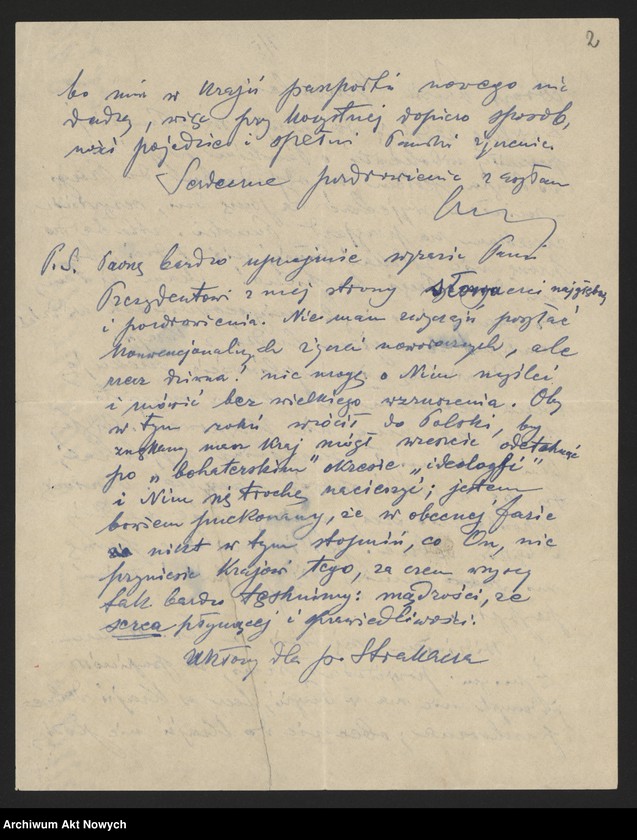 2
bo mu w kraju paszportu nowego nie
dadzą, więc przy
pojedzie i spełni Pański życzenie.
Serdeczne pozdrowienia załączam
P.S. Proszę bardzo uprzejmie wyrazić Panu
Prezydentowi z mej strony najgłębszej
i pozdrowienia. Nie mam zwyczaju posyłać
konwencjonalnych życzeń noworocznych, ale
rzecz dziwna! nie mogę o Nim myśleć
i mówić bez wielkiego wzruszenia. Oby
w tym roku wrócił do Polski, by
znękany nasz Kraj mógł wreszcie odetchnąć
po „bohaterskim” okresie „ideologji”
i Nim się trochę nacieszyć; jestem
bowiem przekonany, że w obecnej fazie
nikt w tym stopniu, co On, nie
przyniesie Krajowi tego, za czem wszyscy
tak bardzo tęsknimy: mądrości, ze
serca płynącej i sprawiedliwości.
Ukłony dla p. Strakacza
Archiwum Akt Nowych